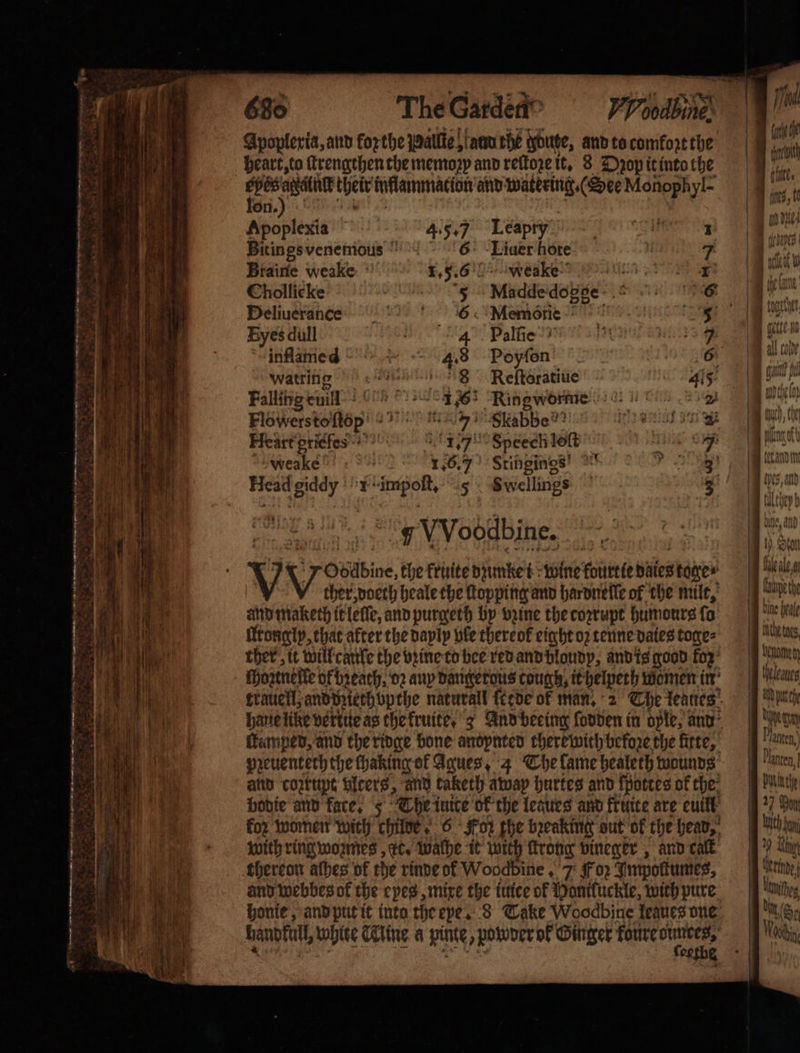 680 The Garden VVoodbine.
Apoplexia, and for the Palsie, and the goute, and to comfort the
heart, to strengthen the memory and restore it. 8 Drop it into the
eyes against their inflammation and watering. (See Monophyl-
lon.)
Apoplexia 4.5.7 Leapry 1
Bitings venemous 6 Liuer hote 7
Braine weake 1.5.6 weake 1
Chollicke 5 Madde dogge 6
Deliuerance 6 Memorie 5
Eyes dull 4 Palsie 7
inflamed 4.8 Poyson 6
watring 8 Restoratiue 4.5
Falling euill 1.6 Ringworme 2
Flowers to stop 7 Skabbe 2
Heart griefes 1.7 Speech lost 7
weake 1.6.7 Stingings 3
Head giddy 1 impost. 5 Swellings 3
¶ VVoodbine.
VVOodbine, the fruite drunke in wine fourtie daies toge-
ther, doeth heale the stopping and hardnesse of the milt,
and maketh it lesse, and purgeth by vrine the corrupt humours so
strongly, that after the dayly vse thereof eight or tenne daies toge-
ther, it will cause the vrine to bee red and bloudy, and is good for
shortnesse of breath, or any dangerous cough, it helpeth women in
trauell, and drieth vp the naturall seede of man. 2 The leaues
haue like vertue as the fruite. 3 And beeing sodden in oyle, and
stamped, and the ridge bone anoynted therewith before the fitte,
preuenteth the shaking of Agues. 4 The same healeth wounds
and corrupt vlcers, and taketh away hurtes and spottes of the
bodie and face. 5 The iuice of the leaues and fruite are euill
for women with childe. 6 For the breaking out of the head,
with ringwormes, &c. washe it with strong vineger, and cast
thereon ashes of the rinde of Woodbine. 7 For Impostumes,
and webbes of the eyes, mixe the iuice of Honisuckle, with pure
honie, and put it into the eye. 8 Take Woodbine leaues one
handfull, white Wine a pinte, powder of Ginger foure ounces,
seethe